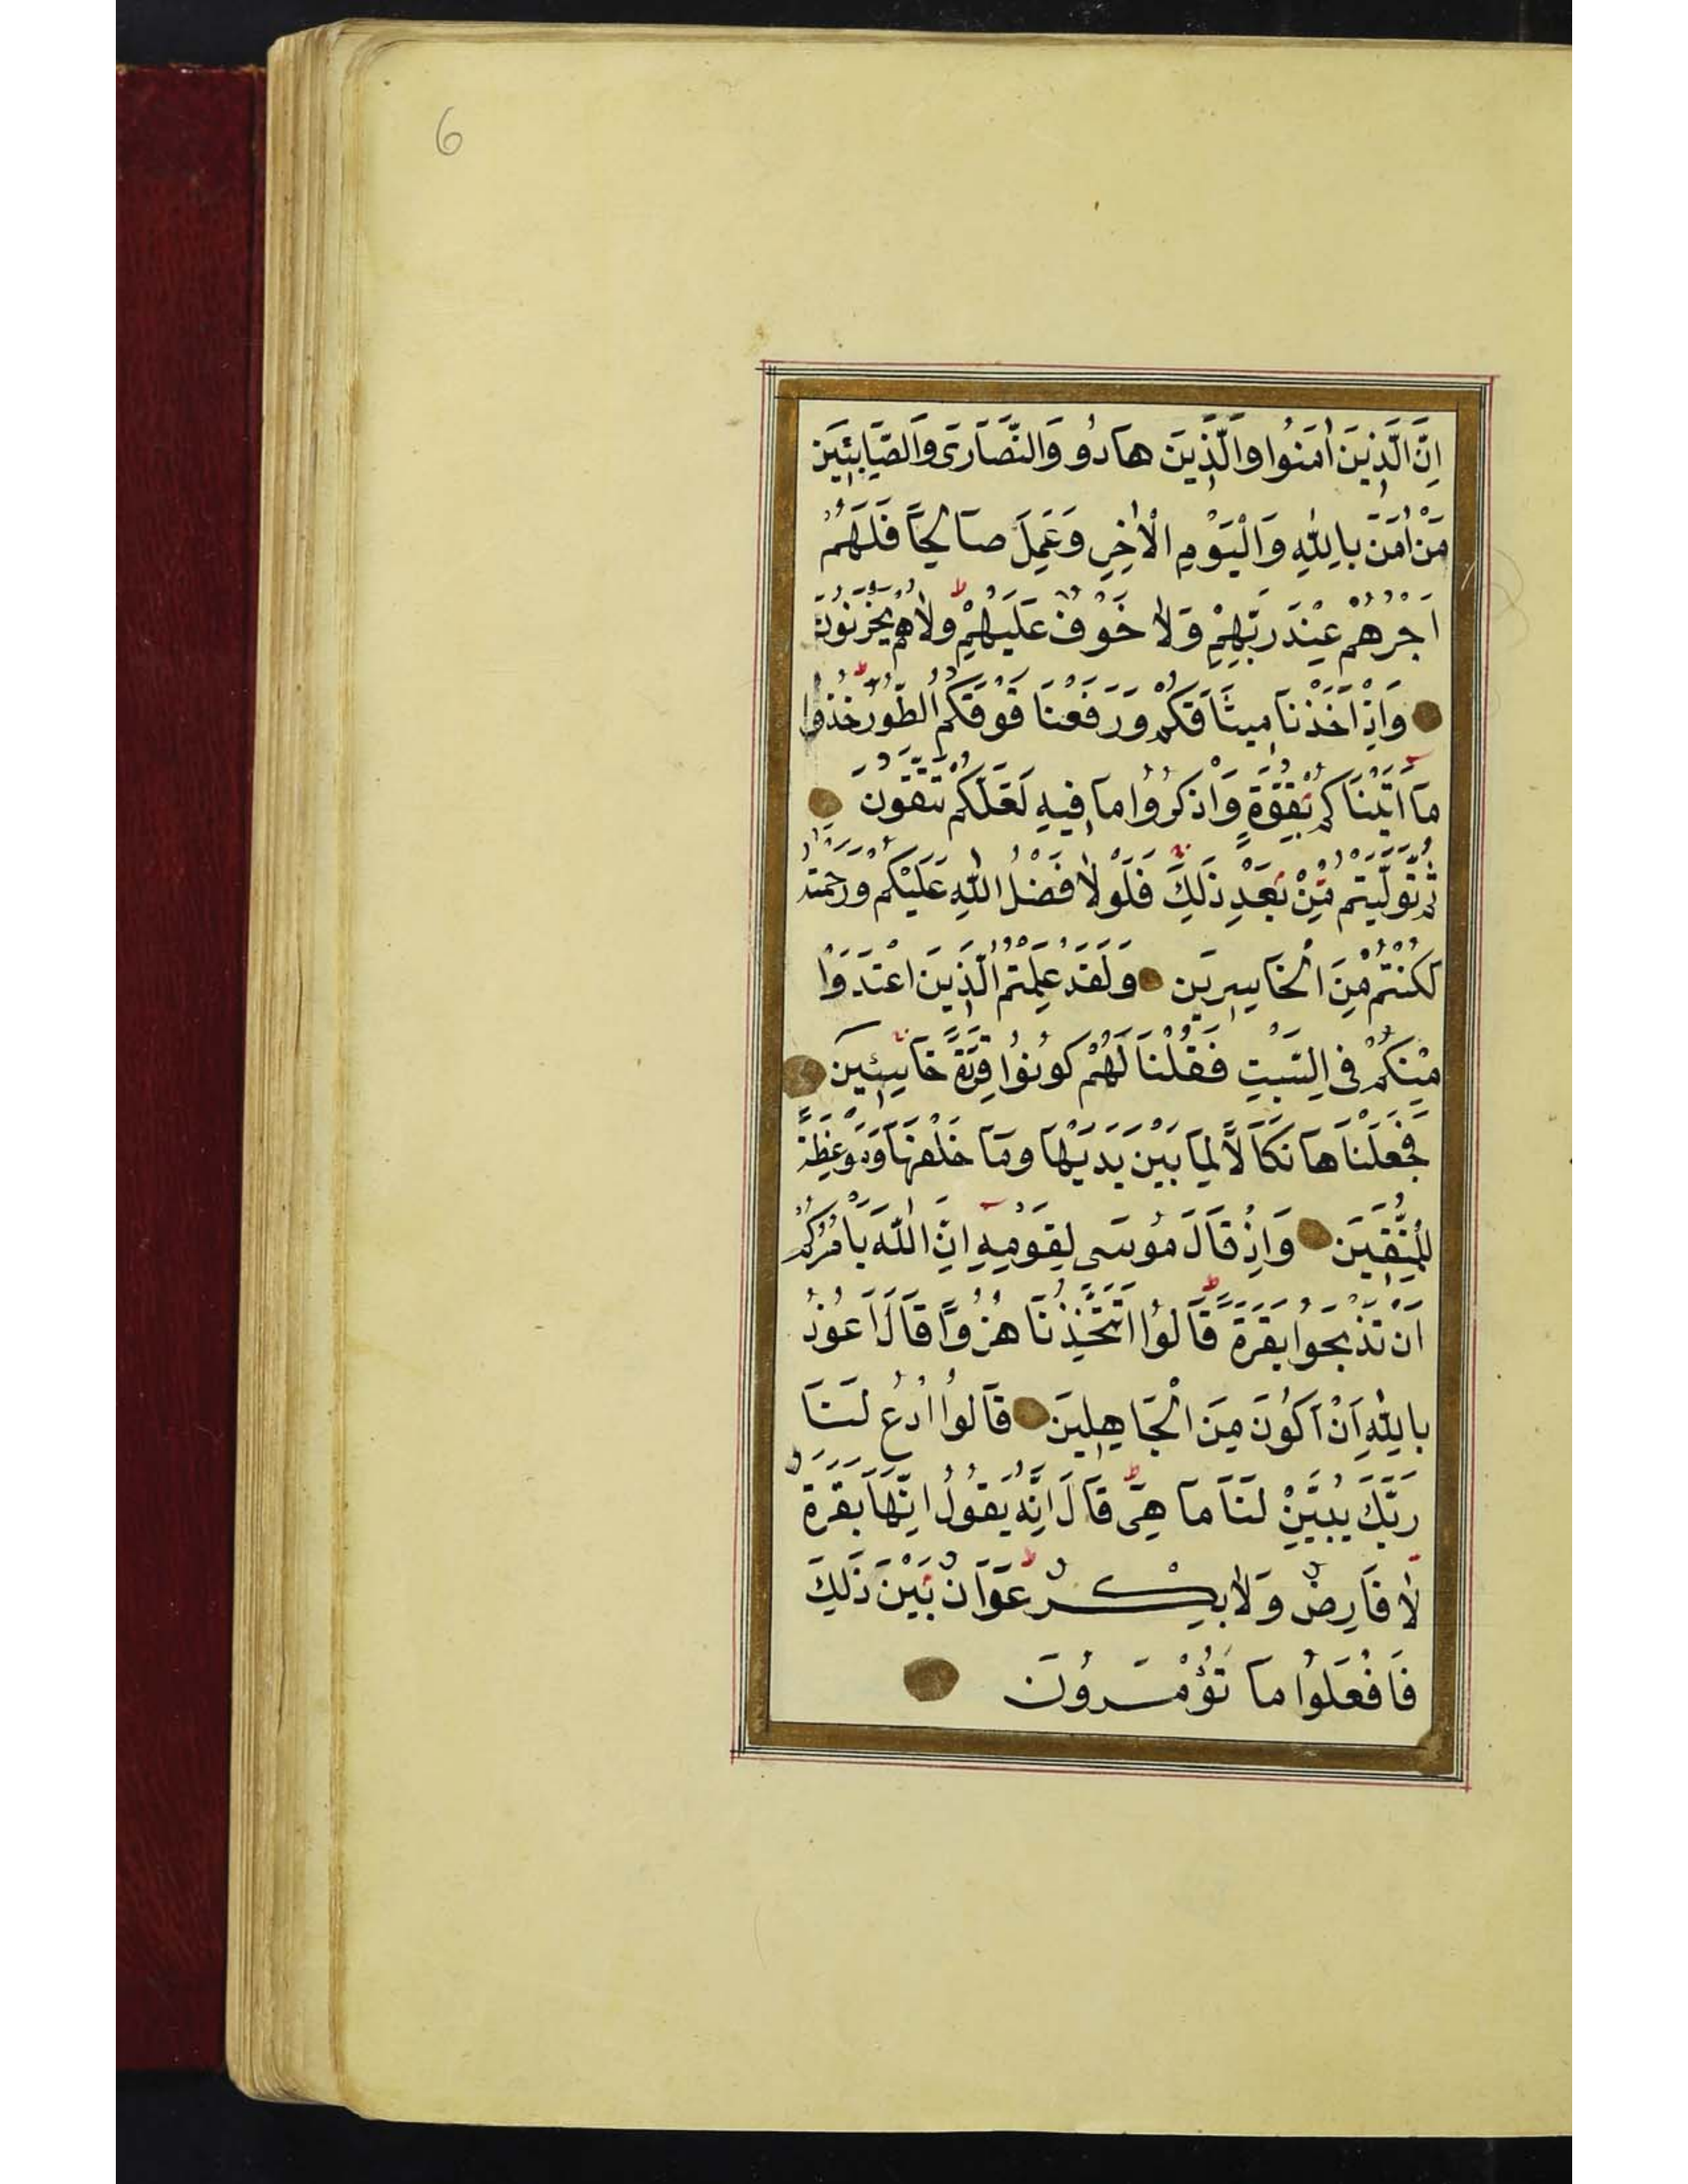 6
اِنَّ الَّذِينَ اٰمَنُوا وَالَّذِينَ هَادُو وَالنَّصَارَى وَالصَّابِئِينَ
مَنْ اٰمَنَ بِاللّٰهِ وَالْيَوْمِ الْاٰخِرِ وَعَمِلَ صَالِحًا فَلَهُمْ
اَجْرُهُمْ عِنْدَ رَبِّهِمْ وَلَا خَوْفٌ عَلَيْهِمْ وَلَا هُمْ يَحْزَنُونَ
وَاِذْ اَخَذْنَا مِيثَاقَكُمْ وَرَفَعْنَا فَوْقَكُمُ الطُّورَ خُذُوا
مَا اٰتَيْنَاكُمْ بِقُوَّةٍ وَاذْكُرُوا مَا فِيهِ لَعَلَّكُمْ تَتَّقُونَ
ثُمَّ تَوَلَّيْتُمْ مِنْ بَعْدِ ذَلِكَ فَلَوْلَا فَضْلُ اللّٰهِ عَلَيْكُمْ وَرَحْمَتُهُ
لَكُنْتُمْ مِنَ الْخَاسِرِينَ وَلَقَدْ عَلِمْتُمُ الَّذِينَ اعْتَدَوْا
مِنْكُمْ فِي السَّبْتِ فَقُلْنَا لَهُمْ كُونُوا قِرَدَةً خَاسِئِينَ
فَجَعَلْنَاهَا نَكَالًا لِمَا بَيْنَ يَدَيْهَا وَمَا خَلْفَهَا وَمَوْعِظَةً
لِلْمُتَّقِينَ وَاِذْ قَالَ مُوسَى لِقَوْمِهِ اِنَّ اللّٰهَ يَأْمُرُكُمْ
اَنْ تَذْبَحُوا بَقَرَةً قَالُوا اَتَتَّخِذُنَا هُزُوًا قَالَ اَعُوذُ
بِاللّٰهِ اَنْ اَكُونَ مِنَ الْجَاهِلِينَ قَالُوا ادْعُ لَنَا
رَبَّكَ يُبَيِّنْ لَنَا مَا هِيَ قَالَ اِنَّهُ يَقُولُ اِنَّهَا بَقَرَةٌ
لَا فَارِضٌ وَلَا بِكْرٌ عَوَانٌ بَيْنَ ذَلِكَ
فَافْعَلُوا مَا تُؤْمَرُونَ